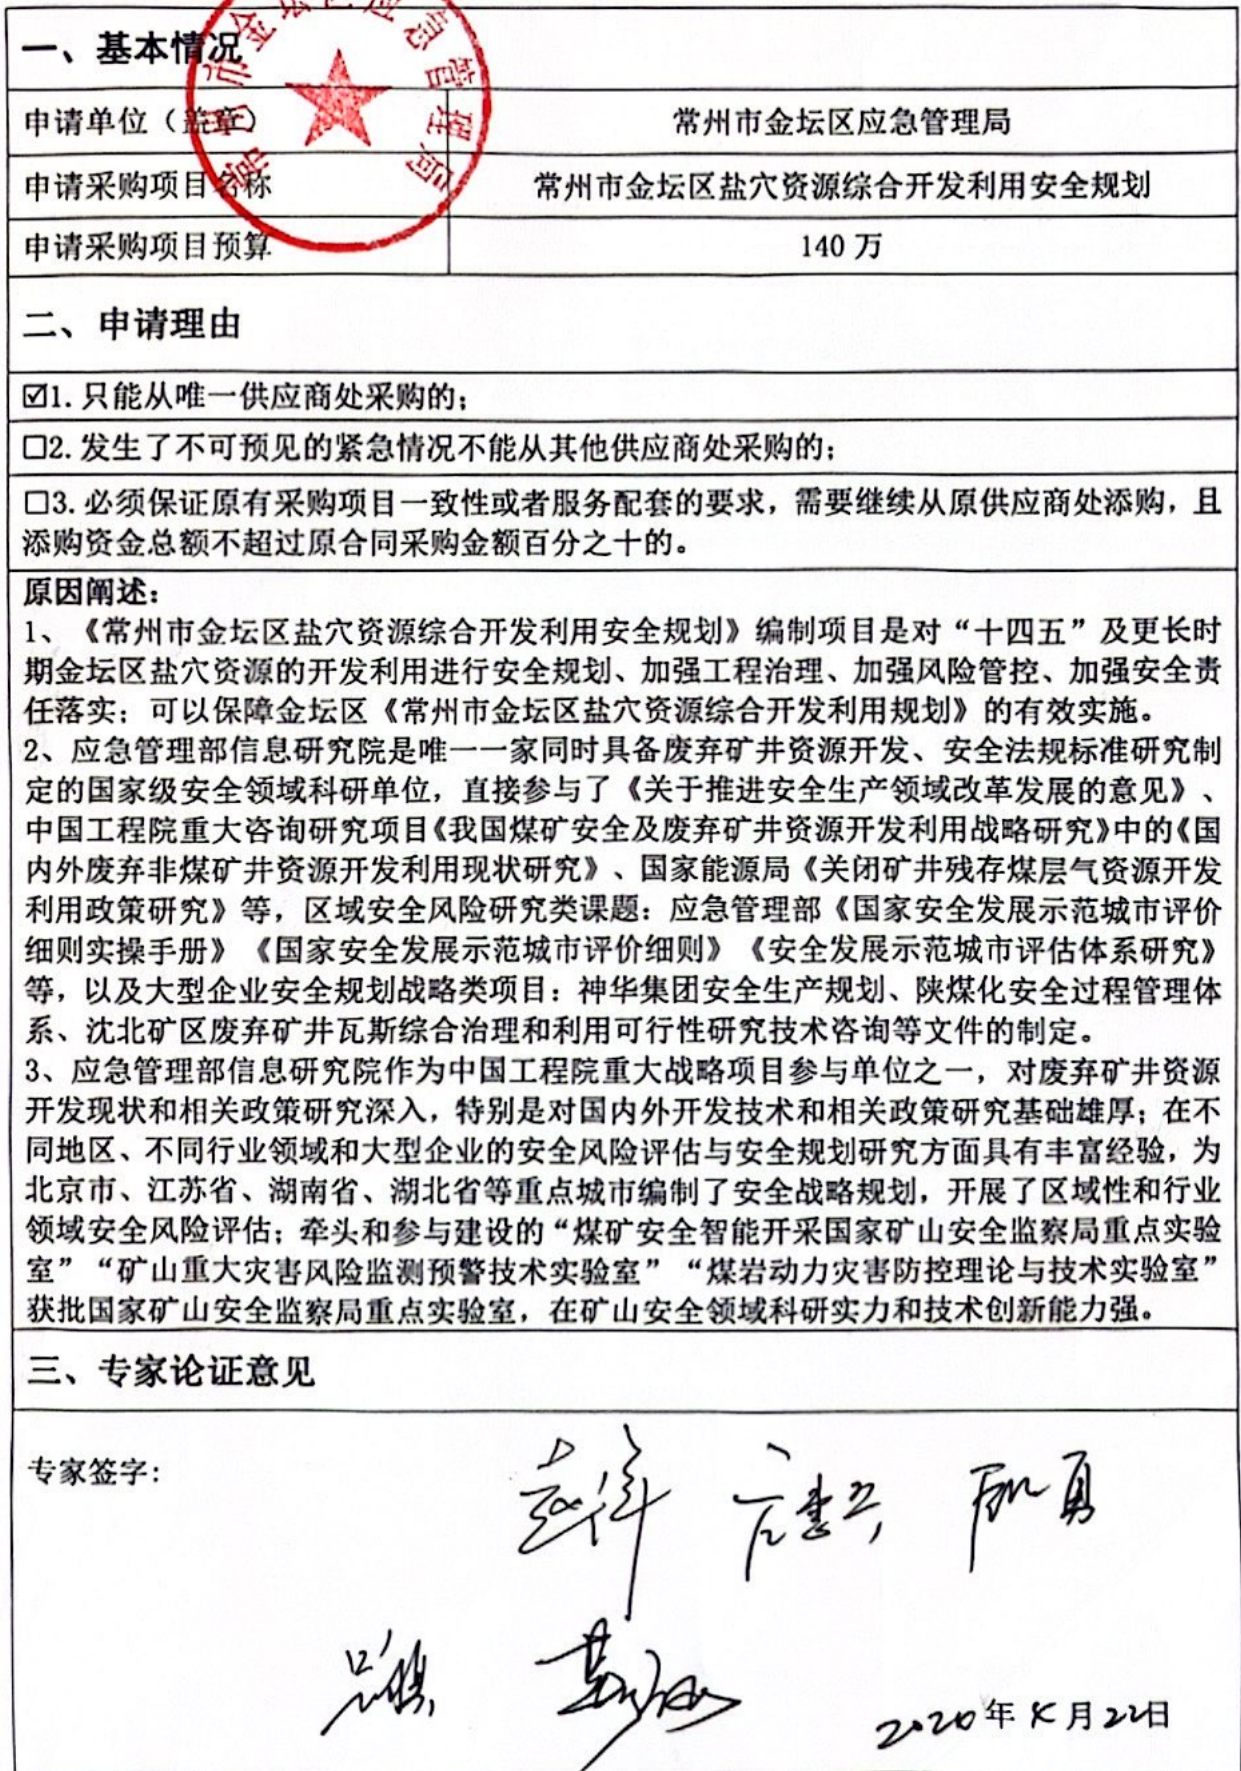 一、基本情况
申请单位（盖章）
常州市金坛区应急管理局
申请采购项目名称
常州市金坛区盐穴资源综合开发利用安全规划
申请采购项目预算
140 万
二、申请理由
☑1. 只能从唯一供应商处采购的；
☐2. 发生了不可预见的紧急情况不能从其他供应商处采购的；
☐3. 必须保证原有采购项目一致性或者服务配套的要求，需要继续从原供应商处添购，且
添购资金总额不超过原合同采购金额百分之十的。
原因阐述：
1、《常州市金坛区盐穴资源综合开发利用安全规划》编制项目是对“十四五”及更长时
期金坛区盐穴资源的开发利用进行安全规划、加强工程治理、加强风险管控、加强安全责
任落实；可以保障金坛区《常州市金坛区盐穴资源综合开发利用规划》的有效实施。
2、应急管理部信息研究院是唯一一家同时具备废弃矿井资源开发、安全法规标准研究制
定的国家级安全领域科研单位，直接参与了《关于推进安全生产领域改革发展的意见》、
中国工程院重大咨询研究项目《我国煤矿安全及废弃矿井资源开发利用战略研究》中的《国
内外废弃非煤矿井资源开发利用现状研究》、国家能源局《关闭矿井残存煤层气资源开发
利用政策研究》等，区域安全风险研究类课题：应急管理部《国家安全发展示范城市评价
细则实操手册》《国家安全发展示范城市评价细则》《安全发展示范城市评估体系研究》
等，以及大型企业安全规划战略类项目：神华集团安全生产规划、陕煤化安全过程管理体
系、沈北矿区废弃矿井瓦斯综合治理和利用可行性研究技术咨询等文件的制定。
3、应急管理部信息研究院作为中国工程院重大战略项目参与单位之一，对废弃矿井资源
开发现状和相关政策研究深入，特别是对国内外开发技术和相关政策研究基础雄厚；在不
同地区、不同行业领域和大型企业的安全风险评估与安全规划研究方面具有丰富经验，为
北京市、江苏省、湖南省、湖北省等重点城市编制了安全战略规划，开展了区域性和行业
领域安全风险评估；牵头和参与建设的“煤矿安全智能开采国家矿山安全监察局重点实验
室”“矿山重大灾害风险监测预警技术实验室”“煤岩动力灾害防控理论与技术实验室”
获批国家矿山安全监察局重点实验室，在矿山安全领域科研实力和技术创新能力强。
三、专家论证意见
专家签字：
年 月22日